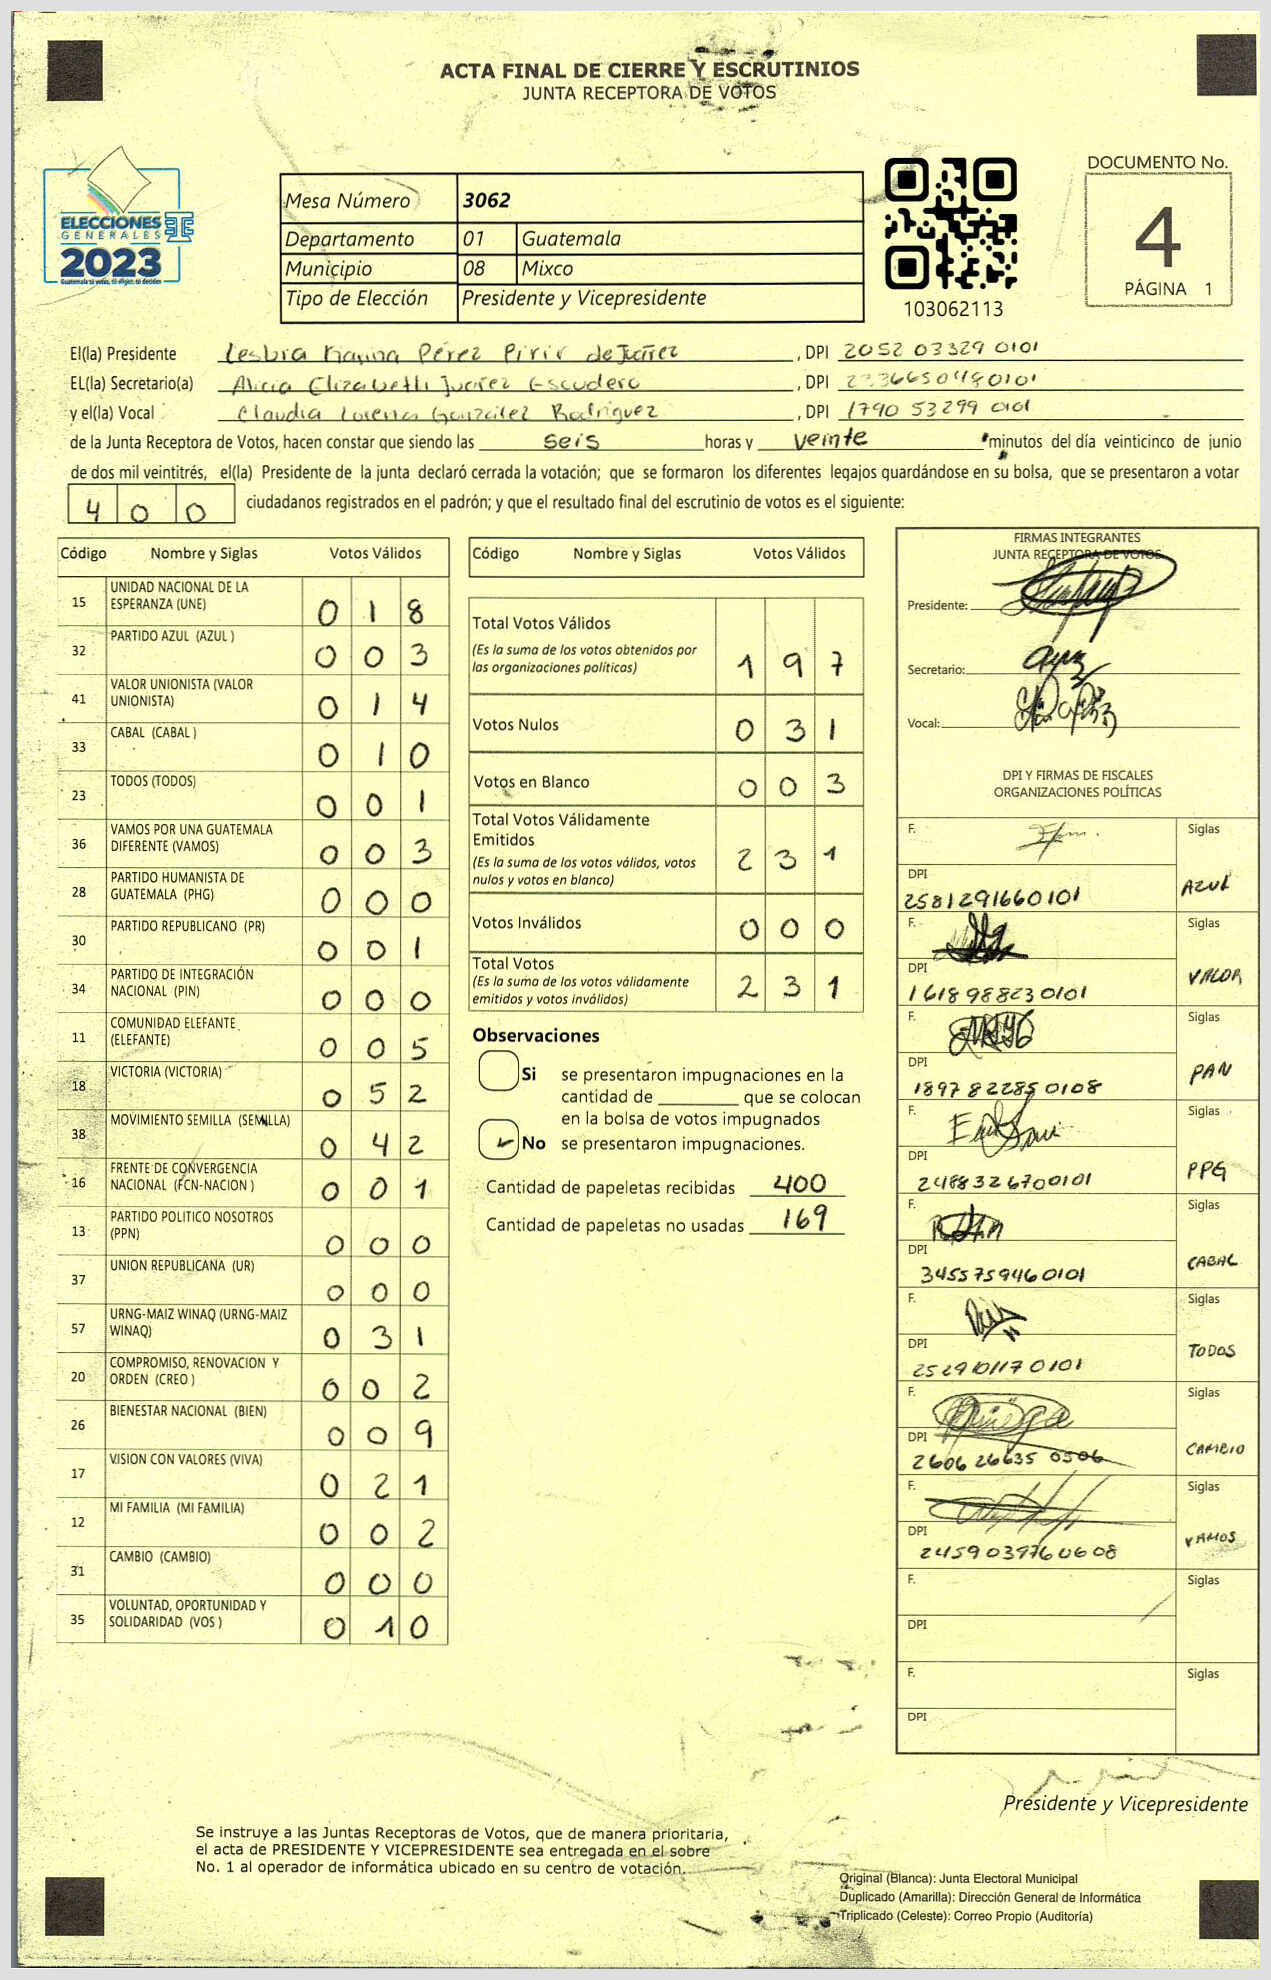 ACTA FINAL DE CIERRE Y ESCRUTINIOS
JUNTA RECEPTORA DE VOTOS
ELECCIONES
GENERALES
2023
Guatemala tú votas, tú eliges, tú decides
Mesa Número 3062
Departamento 01 Guatemala
Municipio 08 Mixco
Tipo de Elección Presidente y Vicepresidente
103062113
DOCUMENTO No.
4
PÁGINA 1
El(la) Presidente Lesbia Karina Pérez Pirir de Juárez , DPI 2052 03329 0101
EL(la) Secretario(a) Alicia Elizabeth Juarez Escudero , DPI 2336650480101
y el(la) Vocal Claudia Lorena González Rodríguez , DPI 1790 53299 0101
de la Junta Receptora de Votos, hacen constar que siendo las seis horas y veinte minutos del día veinticinco de junio
de dos mil veintitrés, el(la) Presidente de la junta declaró cerrada la votación; que se formaron los diferentes legajos guardándose en su bolsa, que se presentaron a votar
400 ciudadanos registrados en el padrón; y que el resultado final del escrutinio de votos es el siguiente:
Código Nombre y Siglas Votos Válidos
15 UNIDAD NACIONAL DE LA
ESPERANZA (UNE) 018
32 PARTIDO AZUL (AZUL ) 003
41 VALOR UNIONISTA (VALOR
UNIONISTA) 014
33 CABAL (CABAL ) 010
23 TODOS (TODOS) 001
36 VAMOS POR UNA GUATEMALA
DIFERENTE (VAMOS) 003
28 PARTIDO HUMANISTA DE
GUATEMALA (PHG) 000
30 PARTIDO REPUBLICANO (PR) 001
34 PARTIDO DE INTEGRACIÓN
NACIONAL (PIN) 000
11 COMUNIDAD ELEFANTE
(ELEFANTE) 005
18 VICTORIA (VICTORIA) 052
38 MOVIMIENTO SEMILLA (SEMILLA) 042
16 FRENTE DE CONVERGENCIA
NACIONAL (FCN-NACION ) 001
13 PARTIDO POLITICO NOSOTROS
(PPN) 000
37 UNION REPUBLICANA (UR) 000
57 URNG-MAIZ WINAQ (URNG-MAIZ
WINAQ) 031
20 COMPROMISO, RENOVACION Y
ORDEN (CREO ) 002
26 BIENESTAR NACIONAL (BIEN) 009
17 VISION CON VALORES (VIVA) 021
12 MI FAMILIA (MI FAMILIA) 002
31 CAMBIO (CAMBIO) 000
35 VOLUNTAD, OPORTUNIDAD Y
SOLIDARIDAD (VOS ) 010
Código Nombre y Siglas Votos Válidos
Total Votos Válidos
(Es la suma de los votos obtenidos por
las organizaciones políticas) 197
Votos Nulos 031
Votos en Blanco 003
Total Votos Válidamente
Emitidos
(Es la suma de los votos válidos, votos
nulos y votos en blanco) 231
Votos Inválidos 000
Total Votos
(Es la suma de los votos válidamente
emitidos y votos inválidos) 231
Observaciones
Si se presentaron impugnaciones en la
cantidad de ________ que se colocan
en la bolsa de votos impugnados
No se presentaron impugnaciones.
Cantidad de papeletas recibidas 400
Cantidad de papeletas no usadas 169
FIRMAS INTEGRANTES
JUNTA RECEPTORA DE VOTOS
Presidente:
Secretario:
Vocal:
DPI Y FIRMAS DE FISCALES
ORGANIZACIONES POLÍTICAS
F. Siglas
DPI AZUL
2581291660101
F. Siglas
DPI VALOR
1618988230101
F. Siglas
DPI PAN
1897822850108
F. Siglas
DPI PPG
2488326700101
F. Siglas
DPI CABAL
3455759460101
F. Siglas
DPI TODOS
2529101170101
F. Siglas
DPI CAMBIO
2606 26635 0506
F. Siglas
DPI VAMOS
2459039760608
F. Siglas
DPI
F. Siglas
DPI
Presidente y Vicepresidente
Se instruye a las Juntas Receptoras de Votos, que de manera prioritaria,
el acta de PRESIDENTE Y VICEPRESIDENTE sea entregada en el sobre
No. 1 al operador de informática ubicado en su centro de votación.
Original (Blanca): Junta Electoral Municipal
Duplicado (Amarilla): Dirección General de Informática
Triplicado (Celeste): Correo Propio (Auditoría)